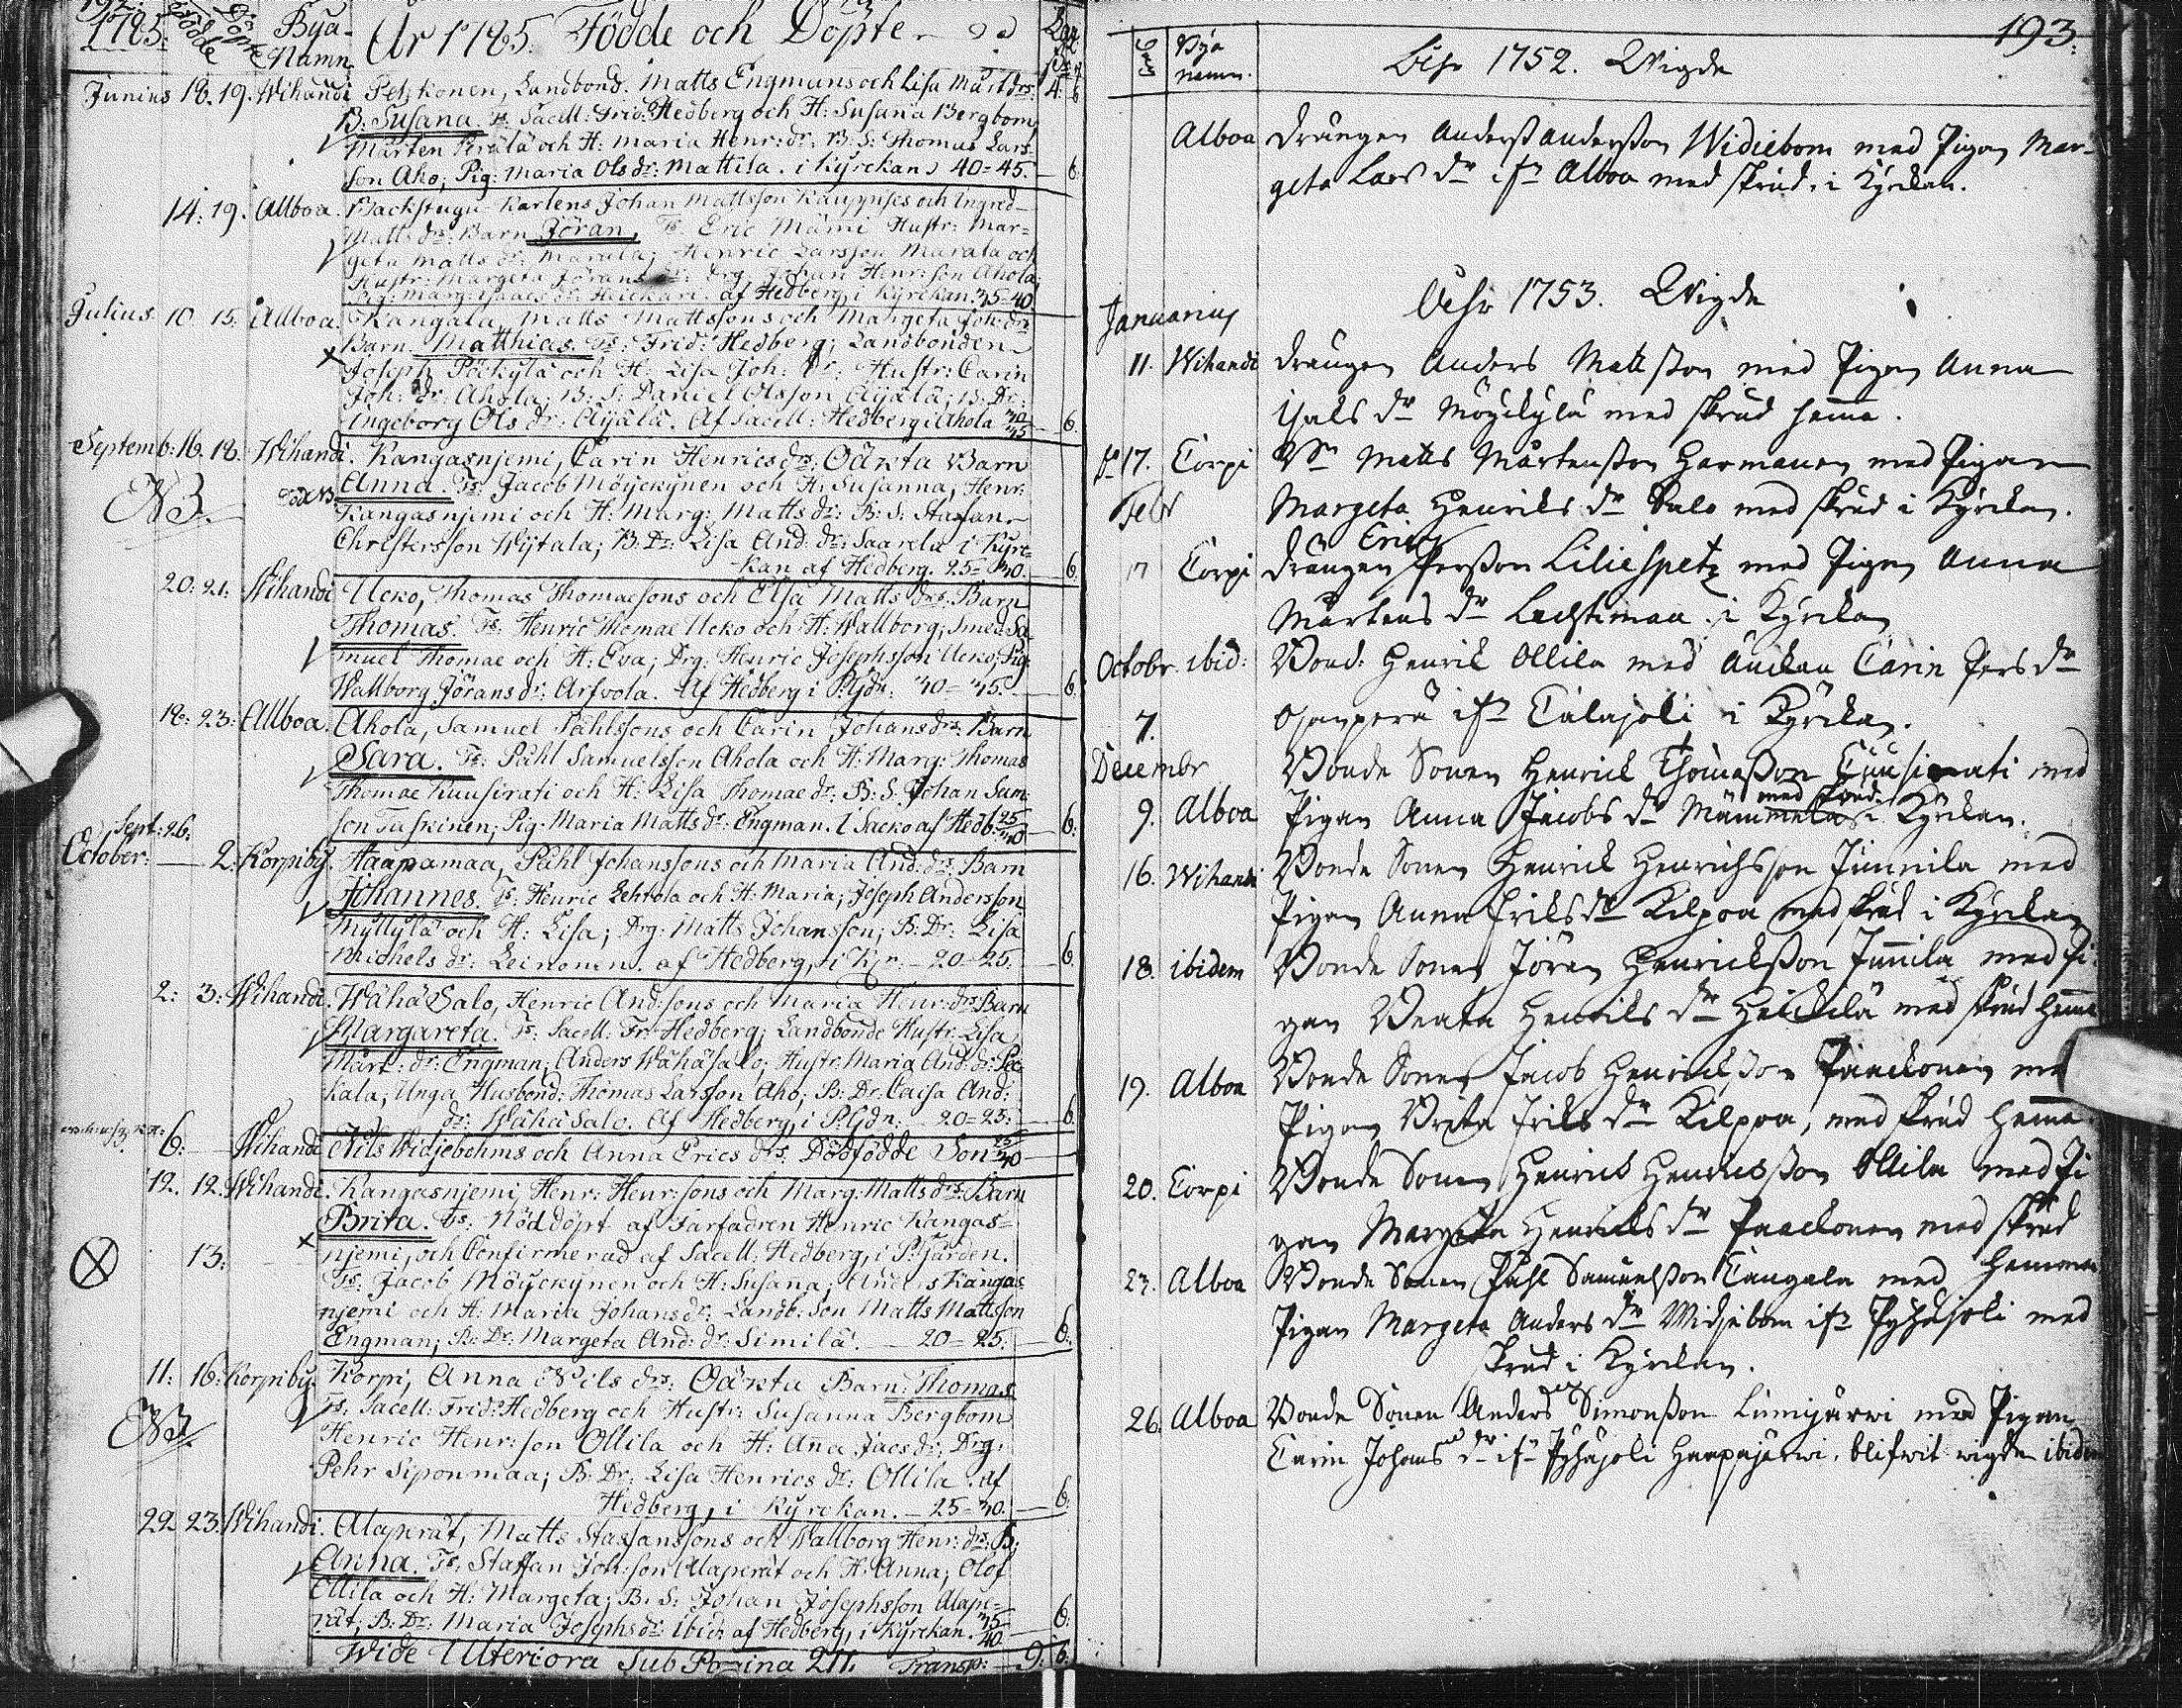 192.
1785.
Födde
Döpte
Bya-
Namn
År 1785. Födde och Döpte
Junius 18. 19. Wihandi Petkonen, Landbond. Matts Engmans och Lisa Mårt. drs 4. 6
B: Susana. Ts. Sacell: Frid: Hedberg och H: Susana Bergbom
Mårten Perälä och H: Maria Henr: dr. B: S: Thomas Lars-
son Aho, Pig: Maria Ols dr: Mattila. i Kyrckan 40=45. 6.
14: 19. Alboa. Backstugu Karlens Johan Mattsson Kauppises och Ingred
Matts drs: Barn Jöran, Ts: Eric Mämi Hustr: Mar-
geta Matts dr: Marala; Henric Larsson Marala och
Hustr: Margeta Jörans dr: Drg. Johan Henr: son Ahola;
Pig: Marg: Isaacs dr: Heickari. af Hedberg, i Kyrckan. 35-40
Julius 10. 15: Alboa. Kangala, Matts Mattssons och Margeta Joh: drs
Barn. Matthias. Ts: Frid: Hedberg; Landbonden
Joseph Pöckylä och H: Lisa Joh: dr: Hustr: Carin
Joh: dr: Ahola; B: S: Daniel Olsson Äijälä; B: Dr:
Ingeborg Ols dr: Äijälä. Af Sacell: Hedberg i Ahola 40/45 6.
Septemb: 16. 18. Wihandi. Kangasnjemi, Carin Henrics drs: Oäkta Barn
NB. Anna. Ts: Jacob Möyckynen och H: Susanna; Henr:
Kangasnjemi och H: Marg: Matts dr: B: S: Staffan
Christersson Wijtala; B: Dr: Lisa And: dr: Saarela i Kyrc-
kan af Hedberg. 25=30. 6.
20: 21: Wihandi Ucko, Thomas Thomaesons och Elsa Matts drs: Barn
Thomas. Ts: Henric Thomae Ucko och H: Wallborg; Smed Sa-
muel Thomae och H: Eva; Drg: Henric Josephsson Ucko; Pig:
Wallborg Jörans dr: Arfvola. Af Hedberg i P:Gdn: 40=45. 6.
18: 23: Alboa. Ahola, Samuel Påhlssons och Carin Johans drs: Barn
Sara. Ts: Påhl Samuelsson Ahola och H: Marg: Thomas
Thomae Kuusirati och H: Lisa Thomae dr: B: S. Johan Sam:
son Taskinen; Pig. Maria Matts dr: Engman. i Sacko af Hedb. 25/30 6:
Sept: 26:
October: — 2. Korpiby. Haapamaa, Påhl Johanssons och Maria And: drs: Barn
Johannes. Ts: Henric Lehtola och H: Maria; Joseph Andersson
Myllylä och H: Lisa; Drg: Matts Johansson; B: Dr: Lisa
Michels dr: Leinonen. af Hedberg, i K:n. — 20=25: 6.
2: 3: Wihandi. Wähä Salo, Henric And: sons och Maria Henr: drs Barn
Margareta. Ts: Sacell: Fr: Hedberg; Landbonde Hustr. Lisa
Mårt: dr: Engman; Anders Wähäsalo; Hustr: Maria And: dr:
kala; Unga Husbond: Thomas Larsson Aho; B: Dr: Caisa And:
dr: Wähä Salo. Af Hedberg, i P:Gdn: — 20=25: 6.
6: Wihandi Nils Widjebohms och Anna Erics drs: Dödfödde Son 25/30
12. 12. Wihandi. Kangasnjemi, Henr: Henr: sons och Marg: Matts drs: Barn
Brita. Ts: Nöddöpt af Farfadren Henric Kangas=
13: njemi, och Confirmerad af Sacell: Hedberg, i P:Gården.
Ts: Jacob Möyckynen och H: Susana; Anders Kangas
njemi och H: Maria Johans dr: Landb: Son Matts Mattsson
Engman; B: Dr: Margeta And: dr: Similä. — 20=25: 6:
11: 16: Korpiby. Korpi, Anna Nils drs: Oäkta Barn: Thomas
NB. Ts. Sacell: Frid: Hedberg och Hustr: Susanna Bergbom
Henric Henr: son Ollila och H: Ana Jacs dr: Drg:
Pehr Siponmaa; B: Dr: Lisa Henrics dr: Ollila. af
Hedberg, i Kyrckan. — 25=30. 6:
22. 23. Wihandi. Alaperät, Matts Staffanssons och Wallborg Henr: drs: B:
Anna. Ts: Staffan Joh: son Alaperät och H: Anna; Olof
Ollila och H: Margeta; B: S: Johan Josephsson Alape=
rät; B: Dr: Maria Josephs dr: ibid: af Hedberg, i Kyrckan. 35/40 6:
Wide Ulteriora Sub Pagina 211. Transp: 9: 6:
193.
Bÿa
namn.
Åhr 1752. Wigde
Alboa Drängen Anderß Anderßon Widiebom med Pigan Mar-
geta Lars dr ifr Alboa med skrud i Kÿrckan.
Åhr 1753. Wigde
Januarius
11. Wihandi Drängen Anders Mattßon med Pigan Anna
Isaks dr Möÿckÿlä med skrud hema.
17. Corpi Matts Mårtenßon Harmanen med Pigan
Febr Margeta Henriks dr Salo med skrud i Kÿrckan.
Eric
17 Corpi Drängen Perßon Liliespetz med Pigan Anna
Mårtens dr Lachtimaa i Kÿrckan
Octobr. ibid: Bond: Henrik Ollila med Änckan Carin Pers dr
7. Ojanperä ifr Calajoki i Kÿrckan.
Decembr Bonde Sonen Henrick Thomæßon Cuusirati med
med skrud
9. Alboa Pigan Anna Jacobs dr Mämmelä i Kÿrckan.
16. Wihandi Bonde Sonen Henrick Henrichsson Junnila med
Pigan Anna Eriks dr Kilpoa med skrud i Kÿrckan
18. ibidem Bonde Sonen Jören Henricksßon Junnila med Pi-
gan Beata Henriks dr Heickilä med skrud hema
19. Alboa Bonde Sonen Jacob Henricksßon Paackonen me
Pigan Brita Eriks dr Kilpoa, med skrud hema
20. Corpi Bonde Sonen Henrick Henricsßon Ollila med Pi
gan Margeta Henricks dr Paackonen med skrud
23. Alboa Bonde Sonen Påhl Samuelsßon Cangala med hemma
Pigan Margeta Anders dr Widjebom ifr Pyhäjoki med
skrud i Kÿrckan.
26. Alboa Bonde Sonen Anders Simonßon Lumijärwi med Pigan
Carin Johans dr ifr Pÿhäjoki Haapajärwi. blifwit wigde ibidem